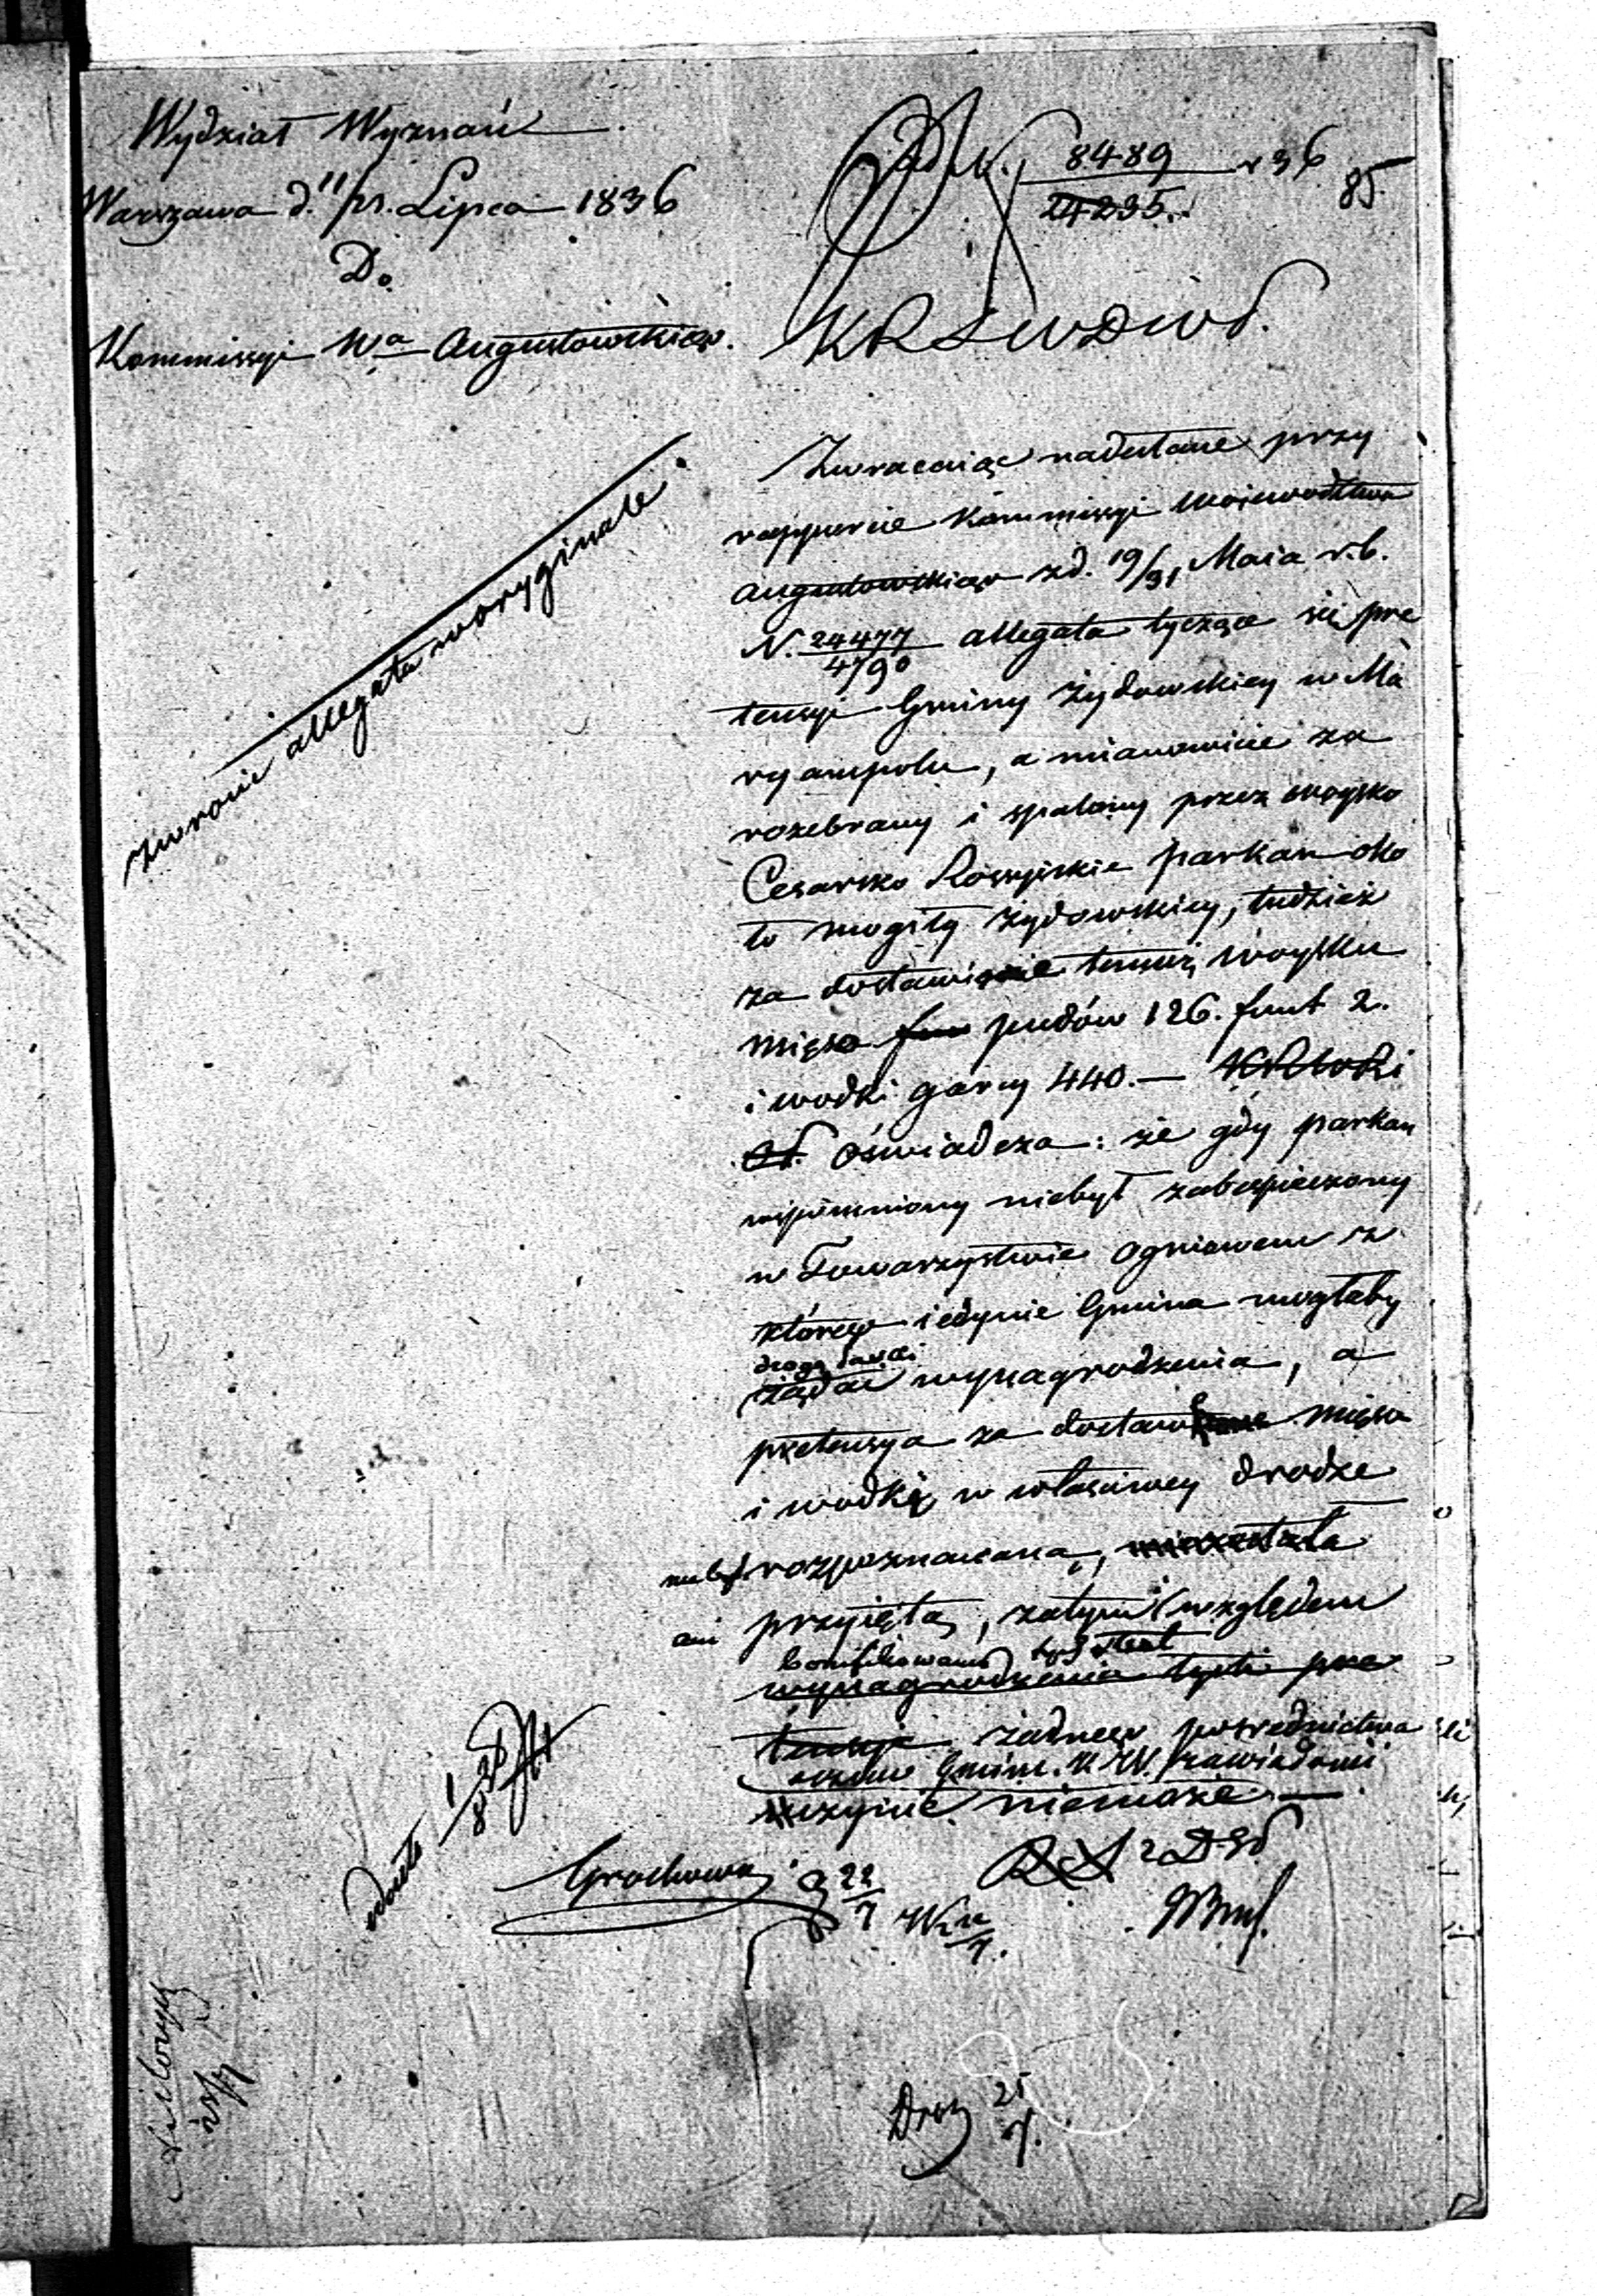 Wydział Wyznań
Warszawa d. 11/23. Lipca 1836
Do
Kommissyi Wa Augustowskiego.
8489
24235.
836
85.
KRSWDiWP.
Zwrócić allegata w oryginale
Zwracaiąc nadesłane przy
rapporcie Kommissyi Województwa
Augustowskiego z d. 19/31 Maia r. b.
N. 24477/4790 allegata tyczące się pre
tensyi Gminy Żydowskiey w Ma
ryampolu, a mianowicie za
rozebrany i spalony przez woysko
Cesarsko Rossyiskie parkan oko
ło mogiły żydowskiey, tudzież
za dostawienie temuż woysku
mięsa pudów 126. funt 2.
i wodki garcy 440. —
oświadcza: że gdy parkan
wspomniony niebył zabespieczony
w Towarzystwie Ogniowem z
którego iedynie Gmina mogłaby
żądać wynagrodzenia, a
pretensya za dostawione mięso
i wodkę w właściwey drodze
rozpoznawaną, niezostała
ani przyiętą, zatym względem
bonifikowania
wynagrodzenia tych pre
tensyi żadnego pośrednictwa
o czem Gminę K. W. zawiadomi
uczynić niemoże. —
Grochowski
22/7
25/7.